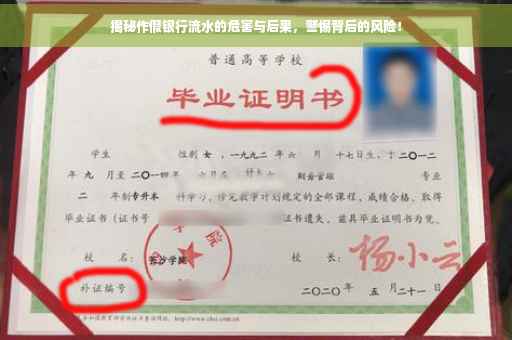 揭秘作假银行流水的危害与后果，警惕背后的风险！
普通高等学校
毕业证明书
学生 性别 女，一九九二年 六 月 十七日生，于 二〇一二
年 九 月至 二〇一四 年 六月在 财务管理 专业
二 年制 专升本 科学习，修完教学计划规定的全部课程，成绩合格，取得
毕业证书（证书号 证书遗失，兹具毕业证明书为凭。
校 名： 长沙学院 校 长： 杨小云
补证编号 二〇二〇年 五 月 二十一日
http://www.chsi.com.cn